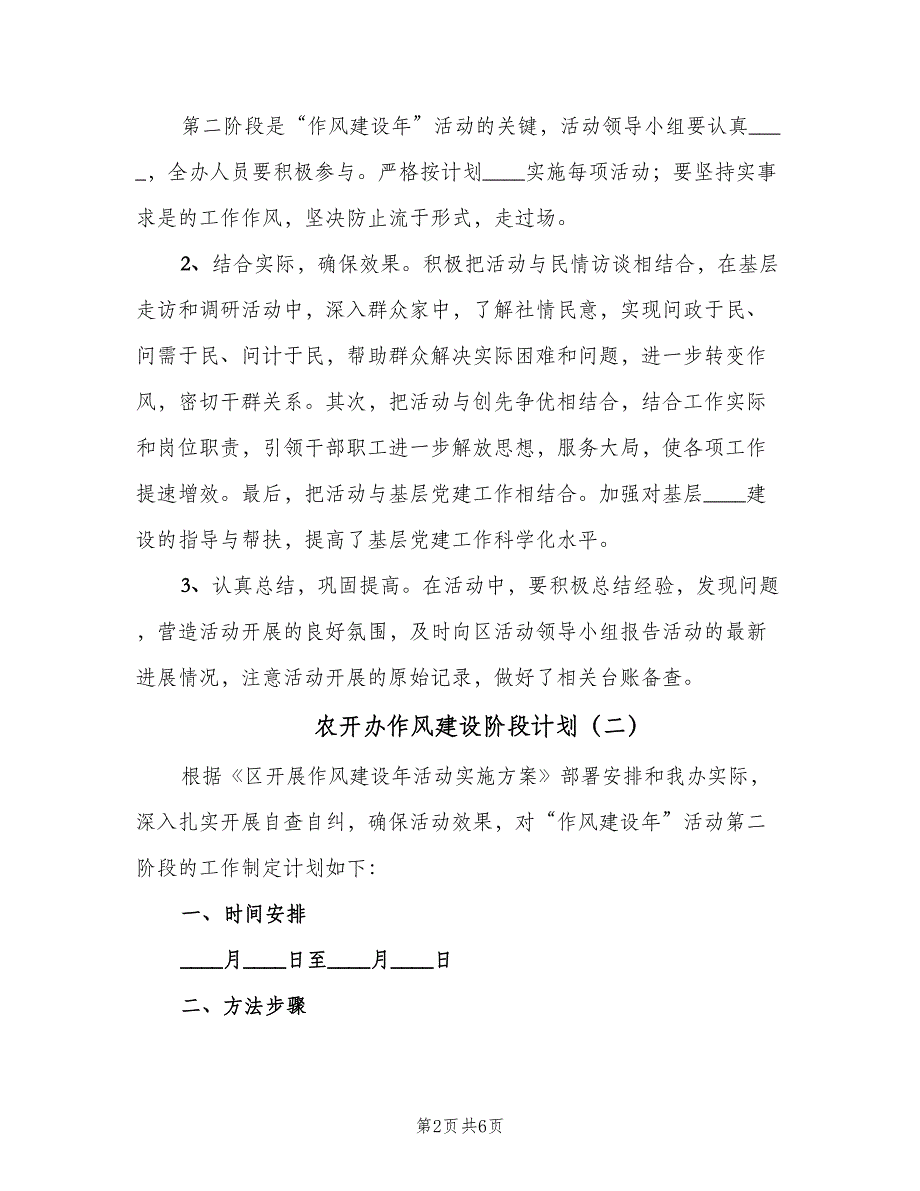 第二阶段是“作风建设年”活动的关键，活动领导小组要认真___
_，全办人员要积极参与。严格按计划____实施每项活动；要坚持实事
求是的工作作风，坚决防止流于形式，走过场。
2、结合实际，确保效果。积极把活动与民情访谈相结合，在基层
走访和调研活动中，深入群众家中，了解社情民意，实现问政于民、
问需于民、问计于民，帮助群众解决实际困难和问题，进一步转变作
风，密切干群关系。其次，把活动与创先争优相结合，结合工作实际
和岗位职责，引领干部职工进一步解放思想，服务大局，使各项工作
提速增效。最后，把活动与基层党建工作相结合。加强对基层____建
设的指导与帮扶，提高了基层党建工作科学化水平。
3、认真总结，巩固提高。在活动中，要积极总结经验，发现问题
，营造活动开展的良好氛围，及时向区活动领导小组报告活动的最新
进展情况，注意活动开展的原始记录，做好了相关台账备查。
农开办作风建设阶段计划（二）
根据《区开展作风建设年活动实施方案》部署安排和我办实际，
深入扎实开展自查自纠，确保活动效果，对“作风建设年”活动第二
阶段的工作制定计划如下：
一、时间安排
____月____日至____月____日
二、方法步骤
第2页 共6页